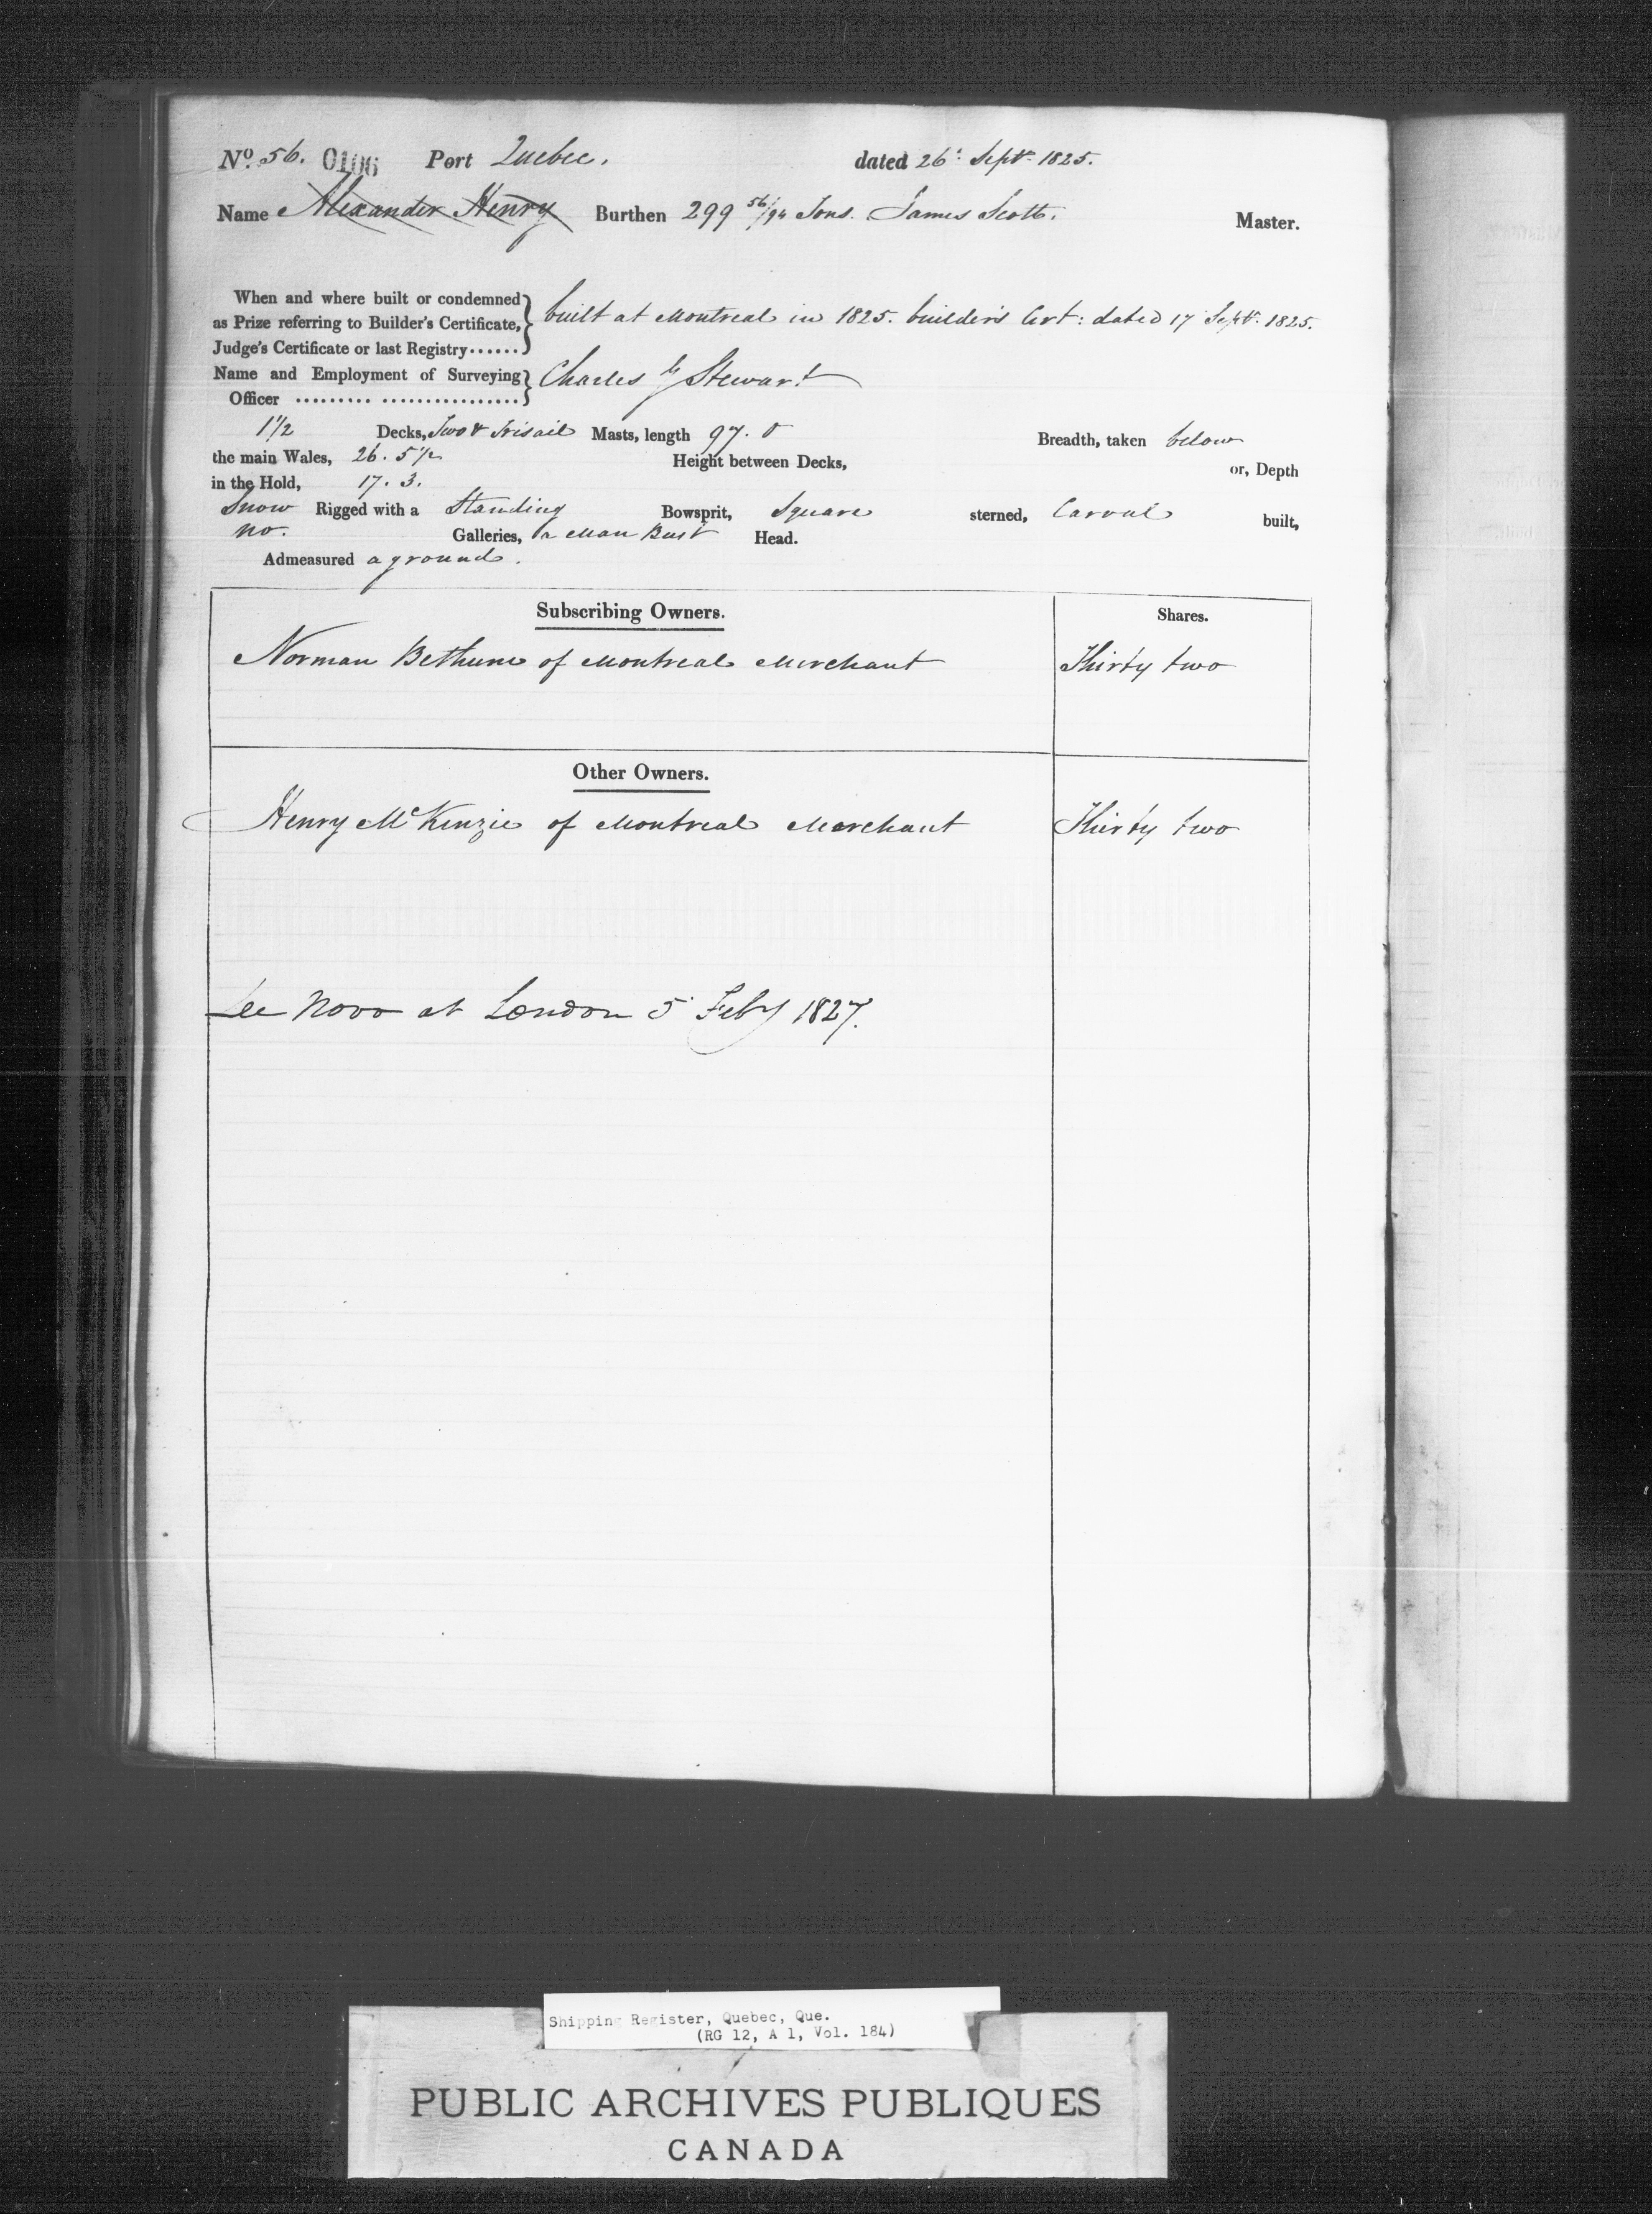 No. 56. 0106 Port Quebec. dated 26: Septr. 1825.
Name Alexander Henry Burthen 299 56/94 Tons. James Scott. Master.
When and where built or condemned
as Prize referring to Builder's Certificate,
Judge's Certificate or last Registry......
built at Montreal in 1825. builder's Cert: dated 17 Septr. 1825.
Name and Employment of Surveying
Officer
Charles G Stewart
1 1/2 Decks, Two & Trisail Masts, length 97. 0 Breadth, taken below
the main Wales, 26. 5 1/2 Height between Decks, or, Depth
in the Hold, 17. 3.
Snow Rigged with a Standing Bowsprit, Square sterned, Carvel built,
no. Galleries, a Man Bust Head.
Admeasured aground.
Subscribing Owners. Shares.
Norman Bethune of Montreal Merchant Thirty two
Other Owners.
Henry McKenzie of Montreal Merchant Thirty two
De Novo at London 5 Feby 1827.
Shipping Register, Quebec, Que.
(RG 12, A 1, Vol. 184)
PUBLIC ARCHIVES PUBLIQUES
CANADA